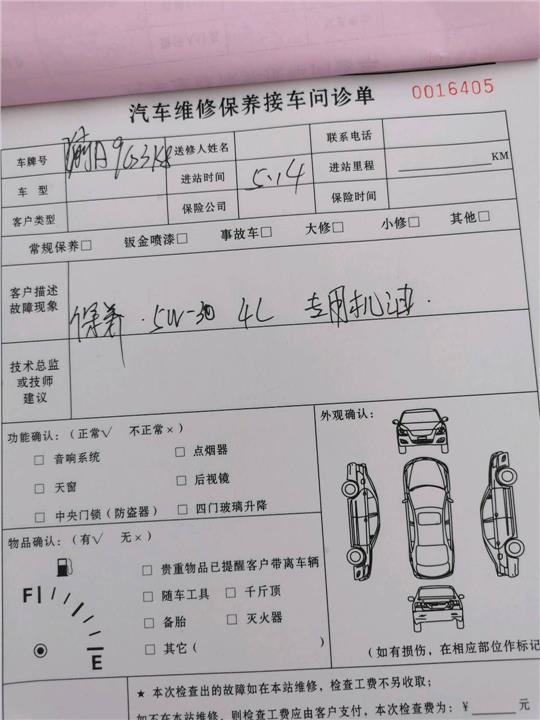 汽车维修保养接车问诊单
0016405
车牌号 送修人姓名 联系电话
车 型 进站时间 5.14 进站里程 KM
客户类型 保险公司 保险时间
常规保养□ 钣金喷漆□ 事故车□ 大修□ 小修□ 其他□
客户描述
故障现象
保养.5W-30 4L 专用机油.
技术总监
或技师
建议
功能确认：（正常√ 不正常×）
□ 音响系统 □ 点烟器
□ 天窗 □ 后视镜
□ 中央门锁（防盗器） □ 四门玻璃升降
外观确认：
物品确认：（有√ 无×）
□ 贵重物品已提醒客户带离车辆
□ 随车工具 □ 千斤顶
□ 备胎 □ 灭火器
□ 其它（ ）
F
E
（如有损伤，在相应部位作标记
★ 本次检查出的故障如在本站维修，检查工费不另收取；
如不在本站维修，则检查工费应由客户支付，本次检查费为：¥ 元